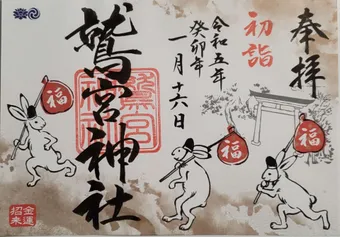 奉拝
初詣
令和五年
癸卯年
一月十六日
鷲宮神社
福
福
福
金運
招来